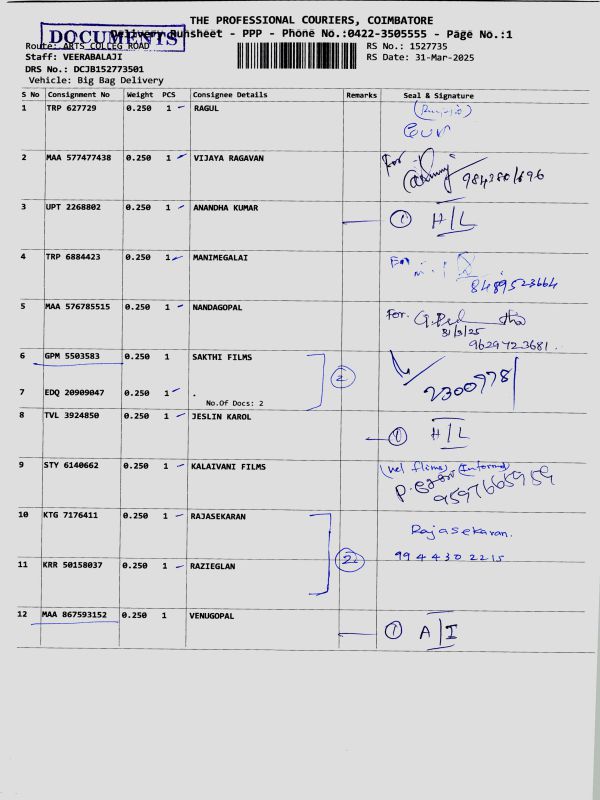 THE PROFESSIONAL COURIERS, COIMBATORE
DOCUMENTS
Delivery Runsheet - PPP - Phone No.:0422-3505555 - Page No.:1
Route: ARTS COLLEG ROAD
RS No.: 1527735
Staff: VEERABALAJI
RS Date: 31-Mar-2025
DRS No.: DCJB152773501
Vehicle: Big Bag Delivery
S No Consignment No Weight PCS Consignee Details Remarks Seal & Signature
1 TRP 627729 0.250 1 RAGUL
2 MAA 577477438 0.250 1 VIJAYA RAGAVAN For
3 UPT 2268802 0.250 1 ANANDHA KUMAR 1 H/L
4 TRP 6884423 0.250 1 MANIMEGALAI For
8489523664
5 MAA 576785515 0.250 1 NANDAGOPAL For.
31/3/25
9629723681.
6 GPM 5503583 0.250 1 SAKTHI FILMS 2
2300778
7 EDQ 20909047 0.250 1 .
No.Of Docs: 2
8 TVL 3924850 0.250 1 JESLIN KAROL 1 H/L
9 STY 6140662 0.250 1 KALAIVANI FILMS
9597665959
10 KTG 7176411 0.250 1 RAJASEKARAN Rajasekaran.
2 9944302215
11 KRR 50158037 0.250 1 RAZIEGLAN
12 MAA 867593152 0.250 1 VENUGOPAL 1 A/I